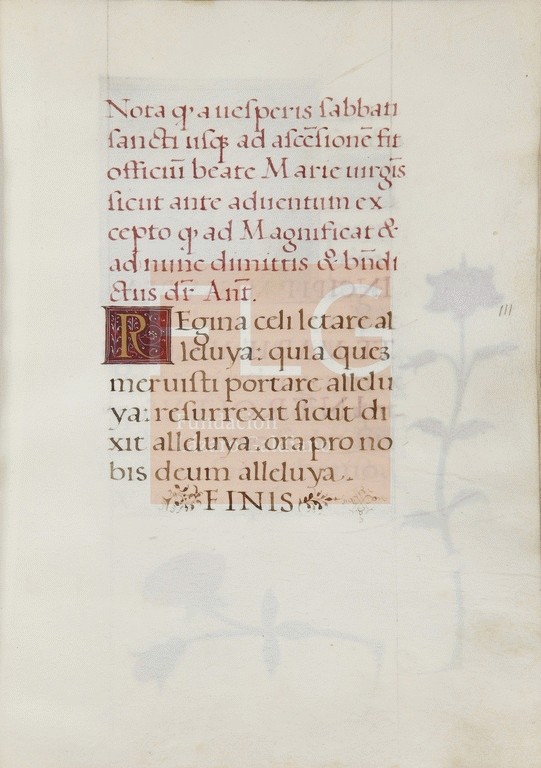 Nota qꝭ a uesperis sabbati
sancti usqꝫ ad ascēsionē fit
officiū beate Marie uirgis̄
sicut ante aduentum ex
cepto qꝭ ad Magnificat &
ad nunc dimittis & bn̄di
ctus dr̄ Ant̄.
Regina celi letare al
leluya: quia queꝫ
meruisti portare allelu
ya: resurrexit sicut di
xit alleluya. ora pro no
bis deum alleluya.
FINIS
111
FLG
Fundación